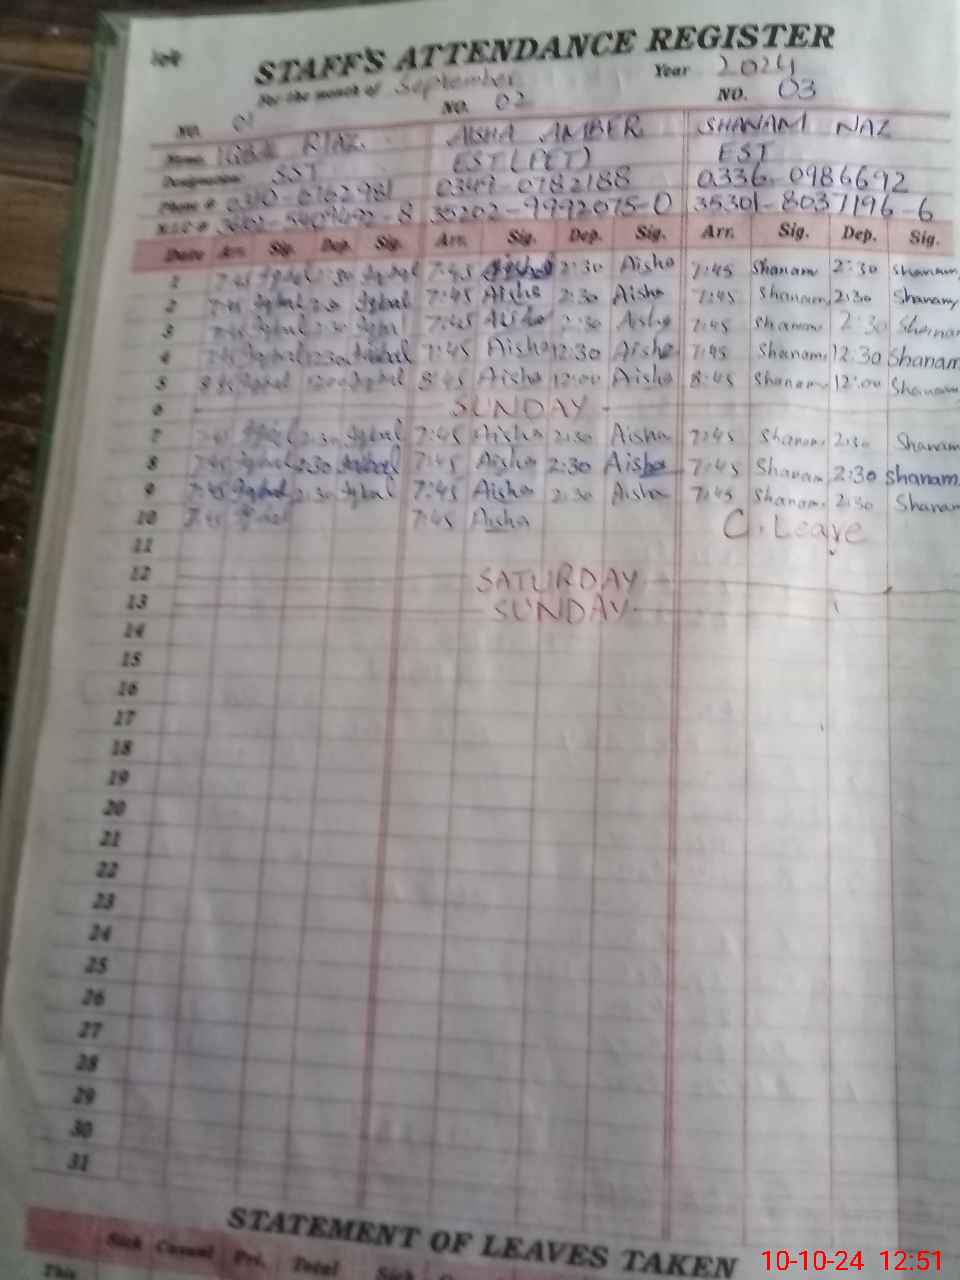 STAFF'S ATTENDANCE REGISTER
For the month of September Year 2024
NO. 01 NO. 02 NO. 03
Name. RIAZ AISHA AMBER SHANAM NAZ
Designation: SST EST (PET) EST
Phone # 0349-0782188 0336-0986692
N.I.C # 35202-9992075-0 35301-8037196-6
Date Arr. Sig. Dep. Sig. Arr. Sig. Dep. Sig. Arr. Sig. Dep. Sig.
1 7:45 Iqbal 2:30 Iqbal 7:45 Aisha 2:30 Aisha 7:45 Shanam 2:30 Shanam
2 7:45 Iqbal 2:30 Iqbal 7:45 Aisha 2:30 Aisha 7:45 Shanam 2:30 Shanam
3 7:45 Iqbal 2:30 Iqbal 7:45 Aisha 2:30 Aisha 7:45 Shanam 2:30 Shanam
4 7:45 Iqbal 12:30 Iqbal 7:45 Aisha 12:30 Aisha 7:45 Shanam 12:30 Shanam
5 8:45 Iqbal 12:00 Iqbal 8:45 Aisha 12:00 Aisha 8:45 Shanam 12:00 Shanam
6 SUNDAY
7 7:45 Iqbal 2:30 Iqbal 7:45 Aisha 2:30 Aisha 7:45 Shanam 2:30 Shanam
8 7:45 Iqbal 2:30 Iqbal 7:45 Aisha 2:30 Aisha 7:45 Shanam 2:30 Shanam
9 7:45 Iqbal 2:30 Iqbal 7:45 Aisha 2:30 Aisha 7:45 Shanam 2:30 Shanam
10 7:45 Iqbal 7:45 Aisha C. Leave
11
12 SATURDAY
13 SUNDAY
14
15
16
17
18
19
20
21
22
23
24
25
26
27
28
29
30
31
STATEMENT OF LEAVES TAKEN
Sick Casual Pri. Total Sick
This
10-10-24 12:51